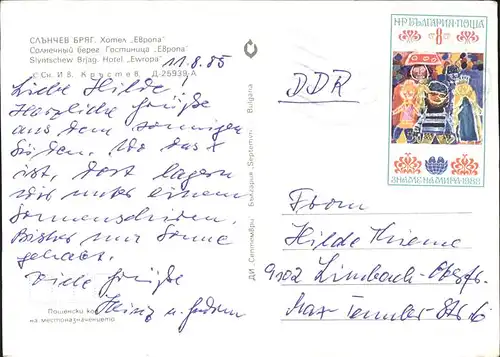 СЛЪНЧЕВ БРЯГ. Хотел „Европа"
Солнечный берег Гостиница „Европа"
Slyntschew Brjag. Hotel „Ewropa"
Сн. И в. Кръстев Д-25939-А
11.8.85
Liebe Hilde.
Herzliche Grüße
aus dem sonnigen
Süden. Wo das X
ist, dort lagern
wir unter einem
Sonnenschirm.
Bisher nur Sonne
gehabt.
Viele Grüße
Heinz u.
Пощенски
на местоназначението
ДИ „Септември" България „Septemvri" Bulgaria
DDR
НР БЪЛГАРИЯ·ПОЩА
8
ЗНАМЕ НА МИРА·1983
Hilde Thieme
9102 Limbach-Obfr.
Max-